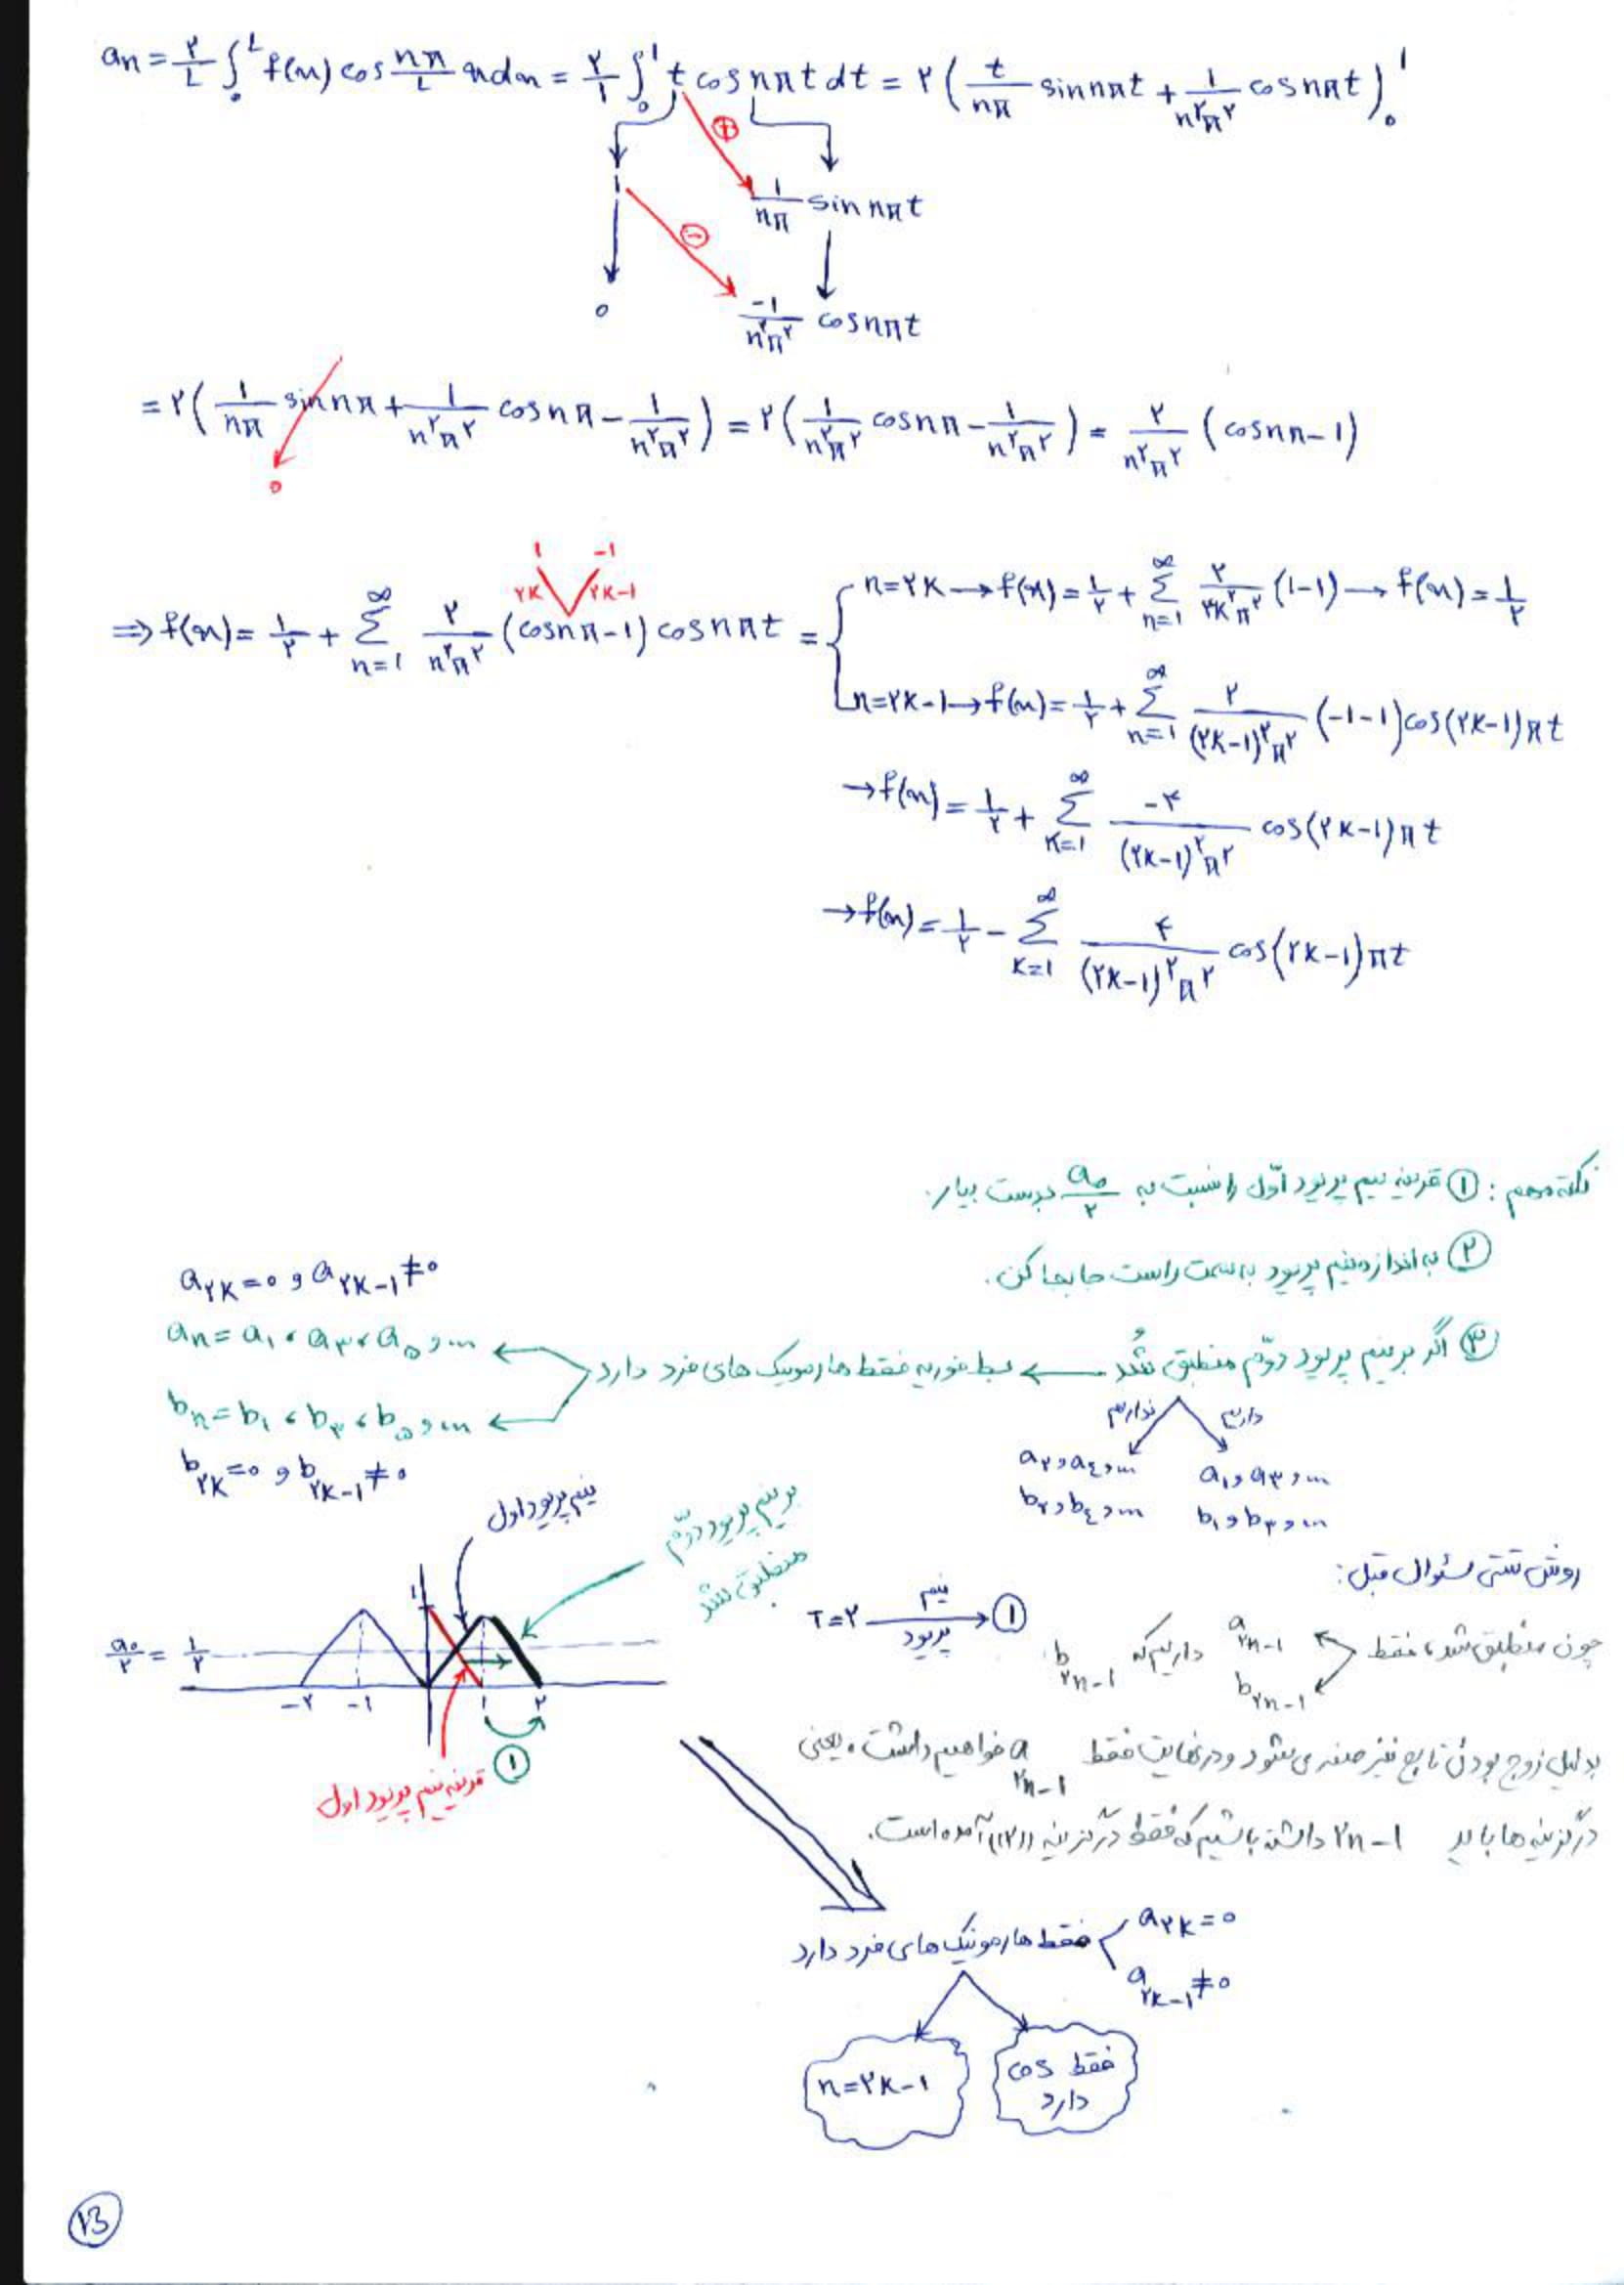 an = ۲/L ∫₀ᴸ f(x) cos nπ/L x dx = ۲/۱ ∫₀¹ t cos nπt dt = ۲( t/nπ sin nπt + ۱/n²π² cos nπt )₀¹
⊕
۱
۱/nπ sin nπt
⊖
۰
-۱/n²π² cos nπt
= ۲( ۱/nπ sin nπ + ۱/n²π² cos nπ - ۱/n²π² ) = ۲( ۱/n²π² cos nπ - ۱/n²π² ) = ۲/n²π² ( cos nπ - ۱ )
۰
۱ -۱
۲K ۲K-۱
⇒ f(x) = ۱/۲ + Σ_{n=۱}^∞ ۲/n²π² (cos nπ - ۱) cos nπt =
n=۲K → f(x) = ۱/۲ + Σ_{n=۱}^∞ ۲/۴K²π² (۱-۱) → f(x) = ۱/۲
n=۲K-۱ → f(x) = ۱/۲ + Σ_{n=۱}^∞ ۲/(۲K-۱)²π² (-۱-۱) cos(۲K-۱)πt
→ f(x) = ۱/۲ + Σ_{K=۱}^∞ -۴/(۲K-۱)²π² cos(۲K-۱)πt
→ f(x) = ۱/۲ - Σ_{K=۱}^∞ ۴/(۲K-۱)²π² cos(۲K-۱)πt
نکته مهم : ① قرینه نیم پریود اوّل را نسبت به a₀/۲ بدست بیار.
② به اندازه نیم پریود به سمت راست جابجا کن.
③ اگر بر نیم پریود دوّم منطبق شُد ← بسط فوریه فقط هارمونیک های فرد دارد
a۲K = ۰ و a۲K-۱ ≠ ۰
an = a۱ ، a۳ ، a۵ و ...
bn = b۱ ، b۳ ، b۵ و ...
b۲K = ۰ و b۲K-۱ ≠ ۰
داریم نداریم
a۱ و a۳ و ... a۲ و a٤ و ...
b۱ و b۳ و ... b۲ و b٤ و ...
نیم پریود اول
بر نیم پریود دوّم
منطبق شد
a₀/۲ = ۱/۲
۱
-۲ -۱ ۱ ۲
①
قرینه نیم پریود اول
روش تستی سئوال قبل:
T=۲ نیم پریود → ①
چون منطبق شد، فقط a۲n-۱ b۲n-۱ داریم که b۲n-۱
بدلیل زوج بودن تابع نیز صفر می شود و در نهایت فقط a۲n-۱ خواهیم داشت. یعنی
در گزینه ها باید ۲n-۱ داشته باشیم که فقط در گزینه ((۲)) آمده است.
فقط هارمونیک های فرد دارد
a۲K = ۰
a۲K-۱ ≠ ۰
n=۲K-۱
فقط cos
دارد
۱3